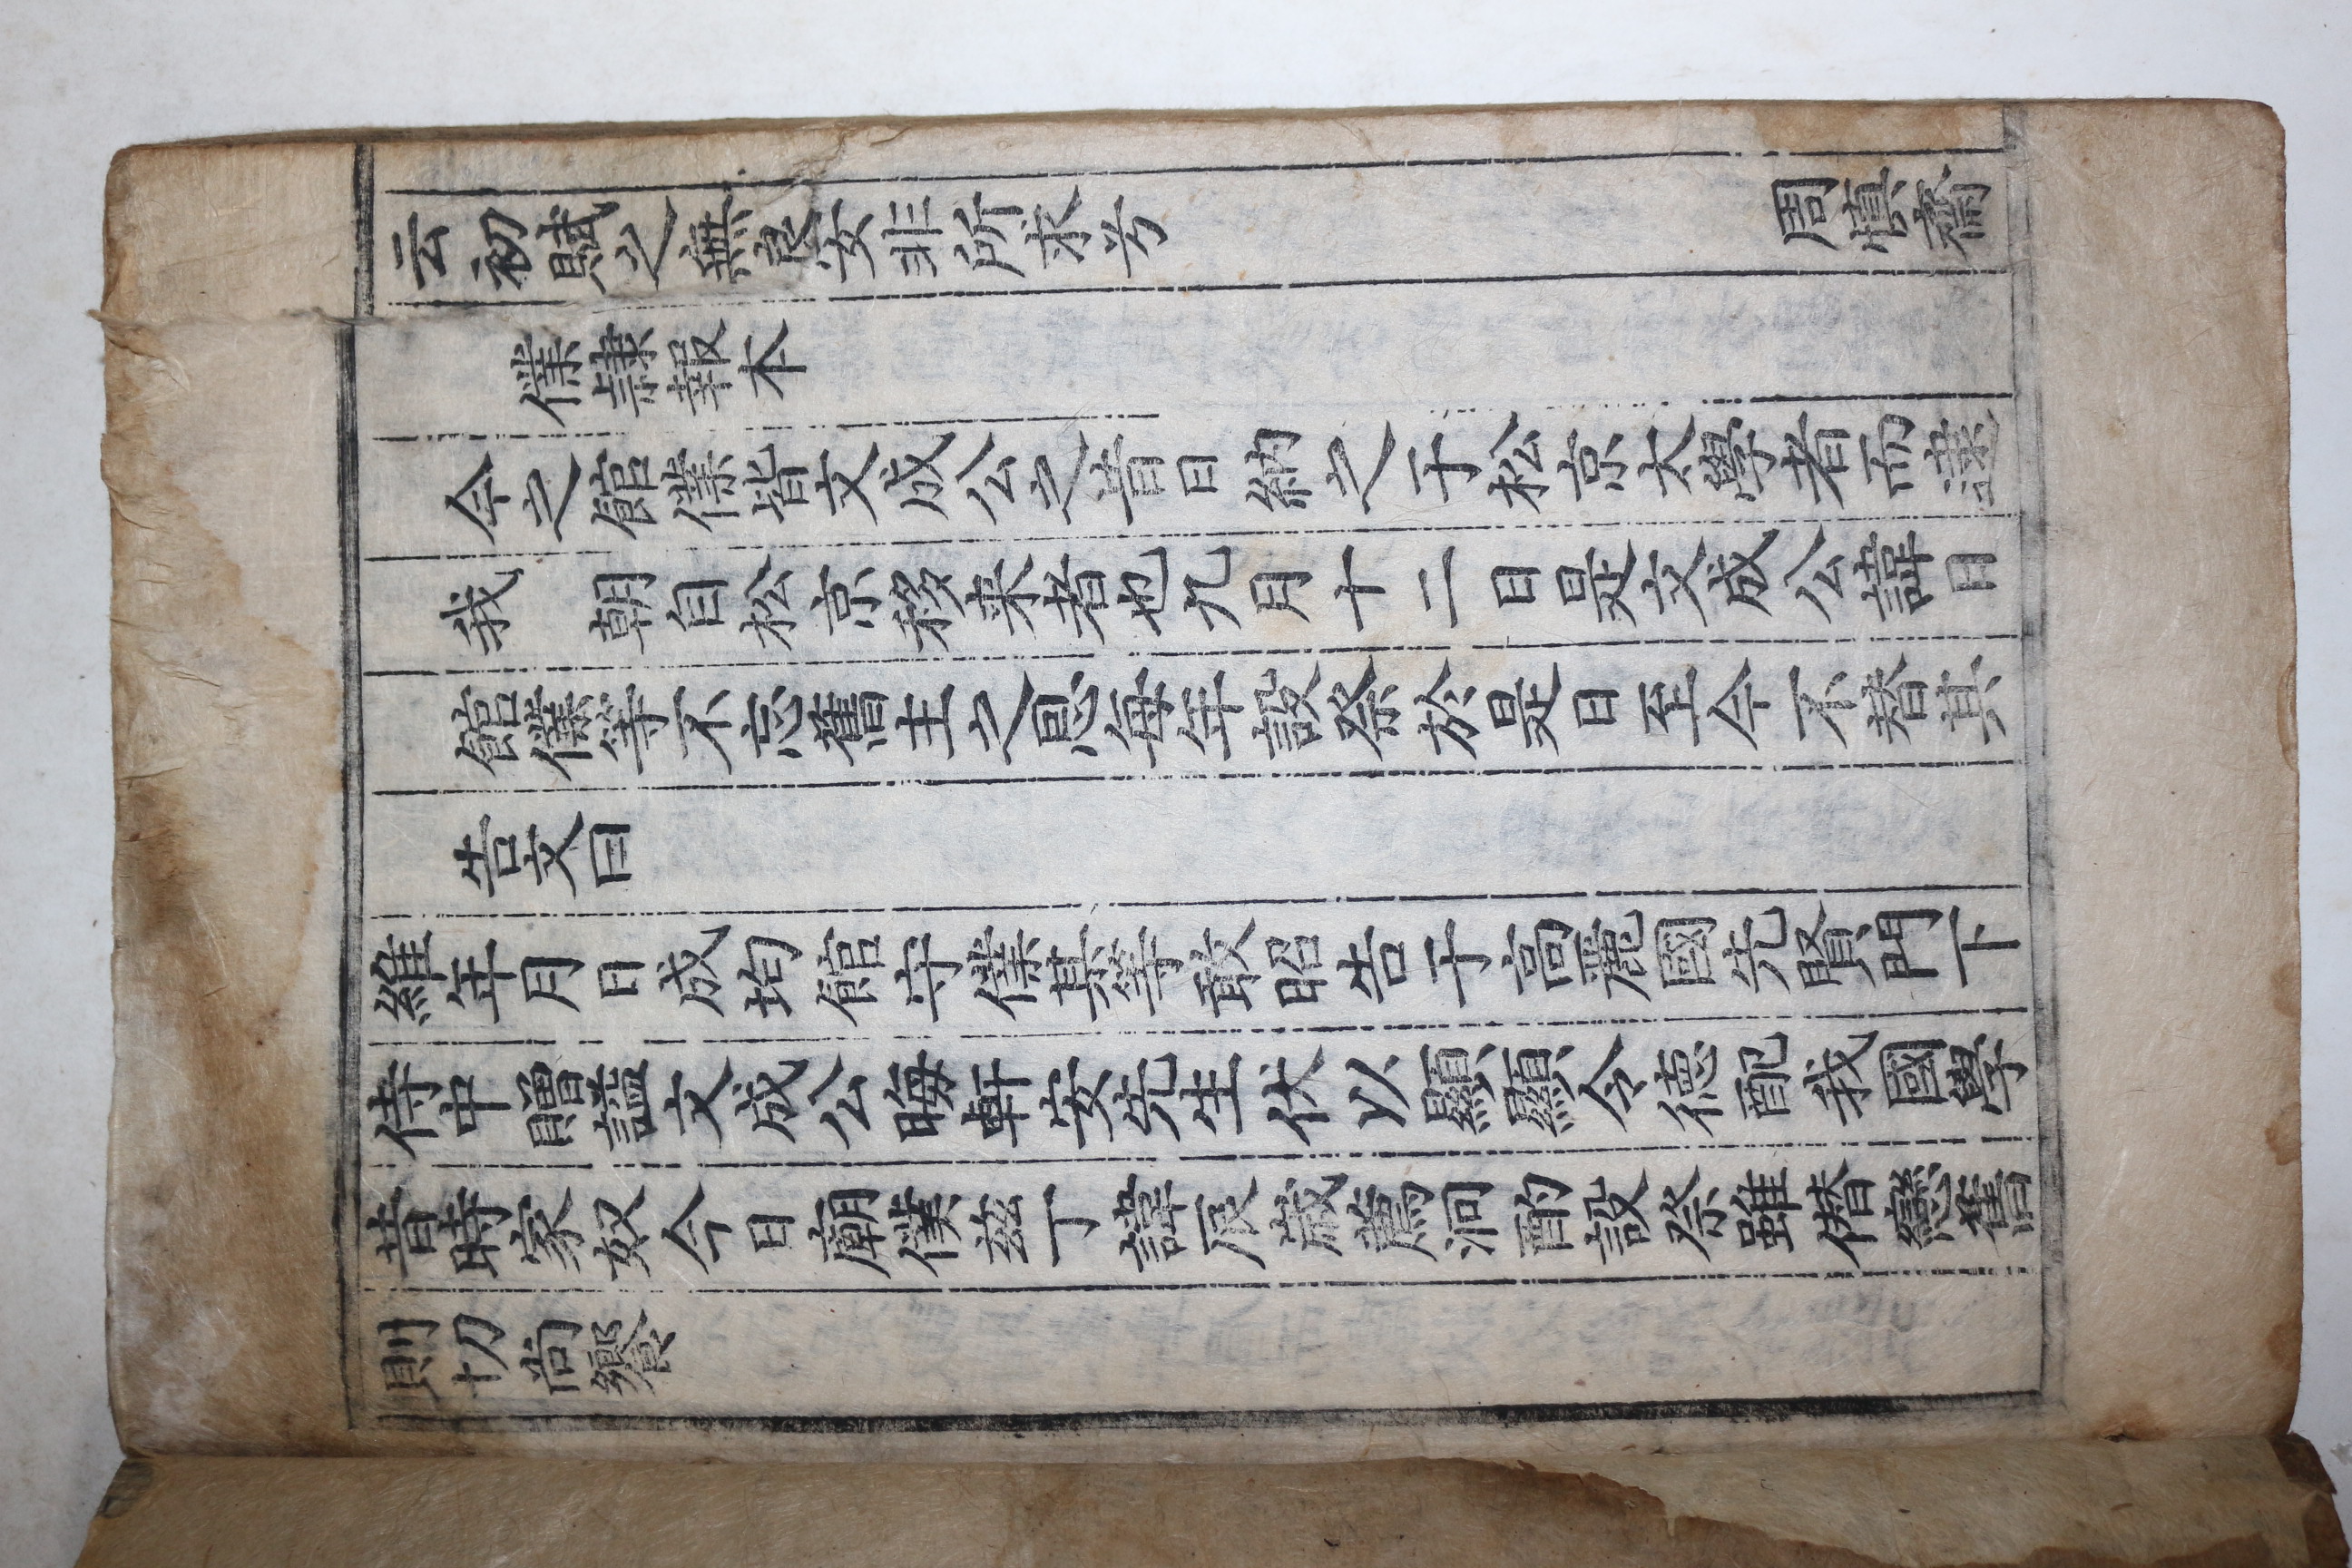 云初賦之無安非所求兮 周愼齋
僕隷報本
今之館僕皆文成公之昔日納之于松京太學者而逮
我 朝自松京移来者也九月十二日是文成公諱日
館僕等不忘舊主之恩每年設祭於是日至今不替其
告文曰
維年月日成均館守僕某等敢昭告于高麗國先賢門下
侍中贈諡文成公晦軒安先生伏以顯顯令德配我國學
昔時家奴今日廟僕玆丁諱辰歲薦泂酌設祭雖僭戀舊
則切尙饗